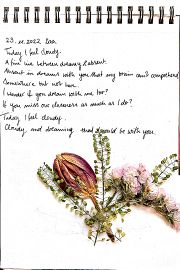 23.11.2022
Today I feel cloudy.
A fine line between dreamy & absent.
Absent in dreams with you that my brain can't comprehend
Somewhere but not here.
I wonder if you dream with me too?
If you miss our closeness as much as I do?
Today I feel cloudy.
Cloudy, and dreaming that I would be with you.